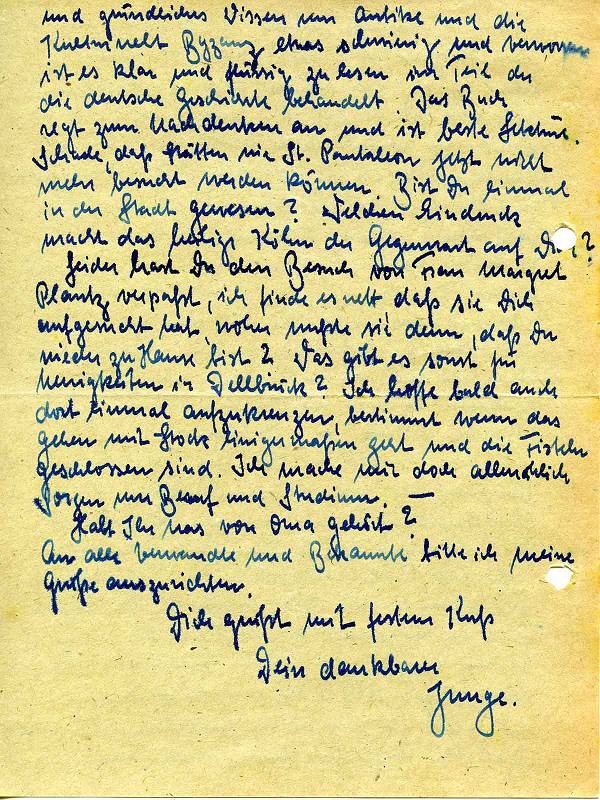 und gründliches Wissen um Antike und die
Kulturwelt Byzanz etwas schwierig und verworren
ist es klar und flüssig zu lesen im Teil der
die deutsche Geschichte behandelt. Das Buch
regt zum Nachdenken an und ist beste Lektüre.
Schade, daß Stätten wie St. Pantaleon jetzt nicht
mehr besucht werden können. Bist Du einmal
in der Stadt gewesen? Welchen Eindruck
macht das heilige Köln der Gegenwart auf Dich?
Leider hast Du den Besuch von Frau Margret
Plantz verpaßt, ich finde es nett daß sie Dich
aufgesucht hat, woher wußte sie denn, daß Du
wieder zu Hause bist? Was gibt es sonst für
Neuigkeiten in Dellbrück? Ich hoffe bald auch
dort einmal aufzukreuzen, bestimmt wenn das
gehen mit Stock einigermaßen geht und die Fisteln
geschlossen sind. Ich mache mir doch allmählich
Sorgen um Beruf und Studium. —
Habt Ihr was von Oma gehört?
An alle Verwandte und Bekannte bitte ich meine
Grüße auszurichten.
Dich grüßt mit festem Kuß
Dein dankbarer
Junge.